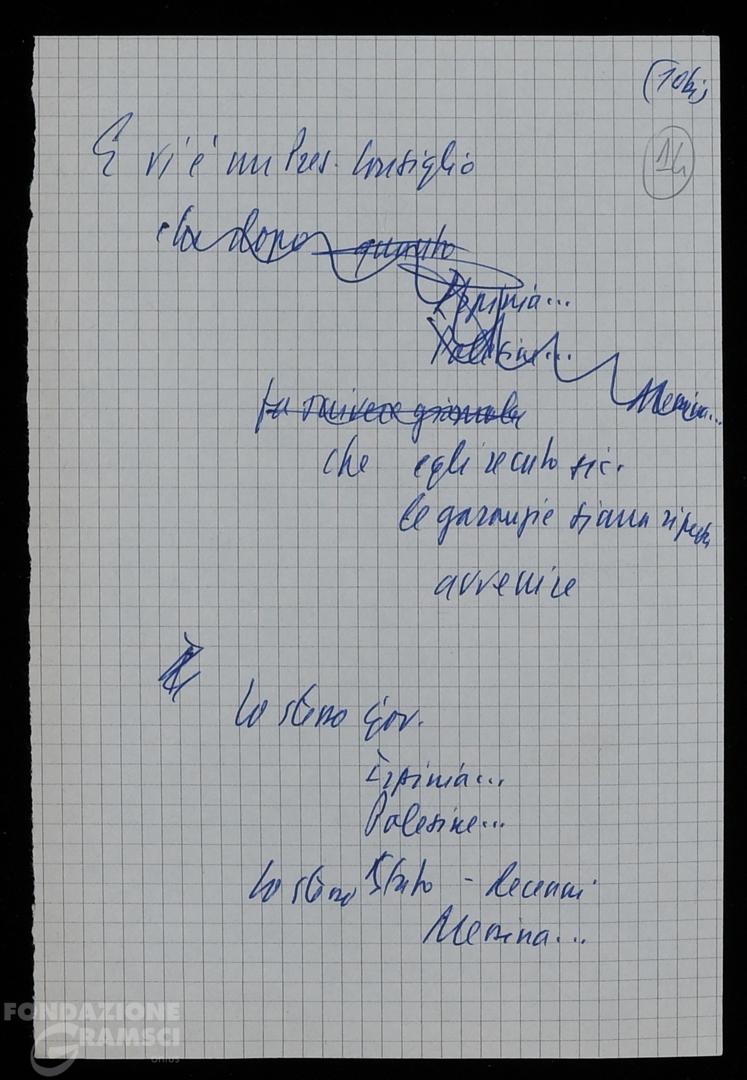 (10bis)
14
E vi è un Pres. Consiglio
che dopo quanto
Irpinia...
Polesine...
Messina...
fa scrivere giornale
che egli recato sic.
le garanzie siano
avvenire
Lo stesso Gov.
Irpinia...
Polesine...
Lo stesso Stato - Decenni
Messina...
FONDAZIONE
GRAMSCI
onlus